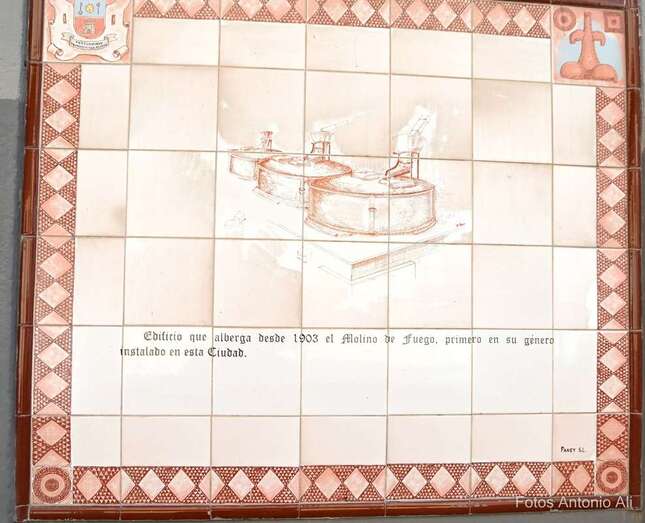 Edificio que alberga desde 1903 el Molino de Fuego, primero en su género
instalado en esta Ciudad.
PAREY S.L.
Fotos Antonio Ali